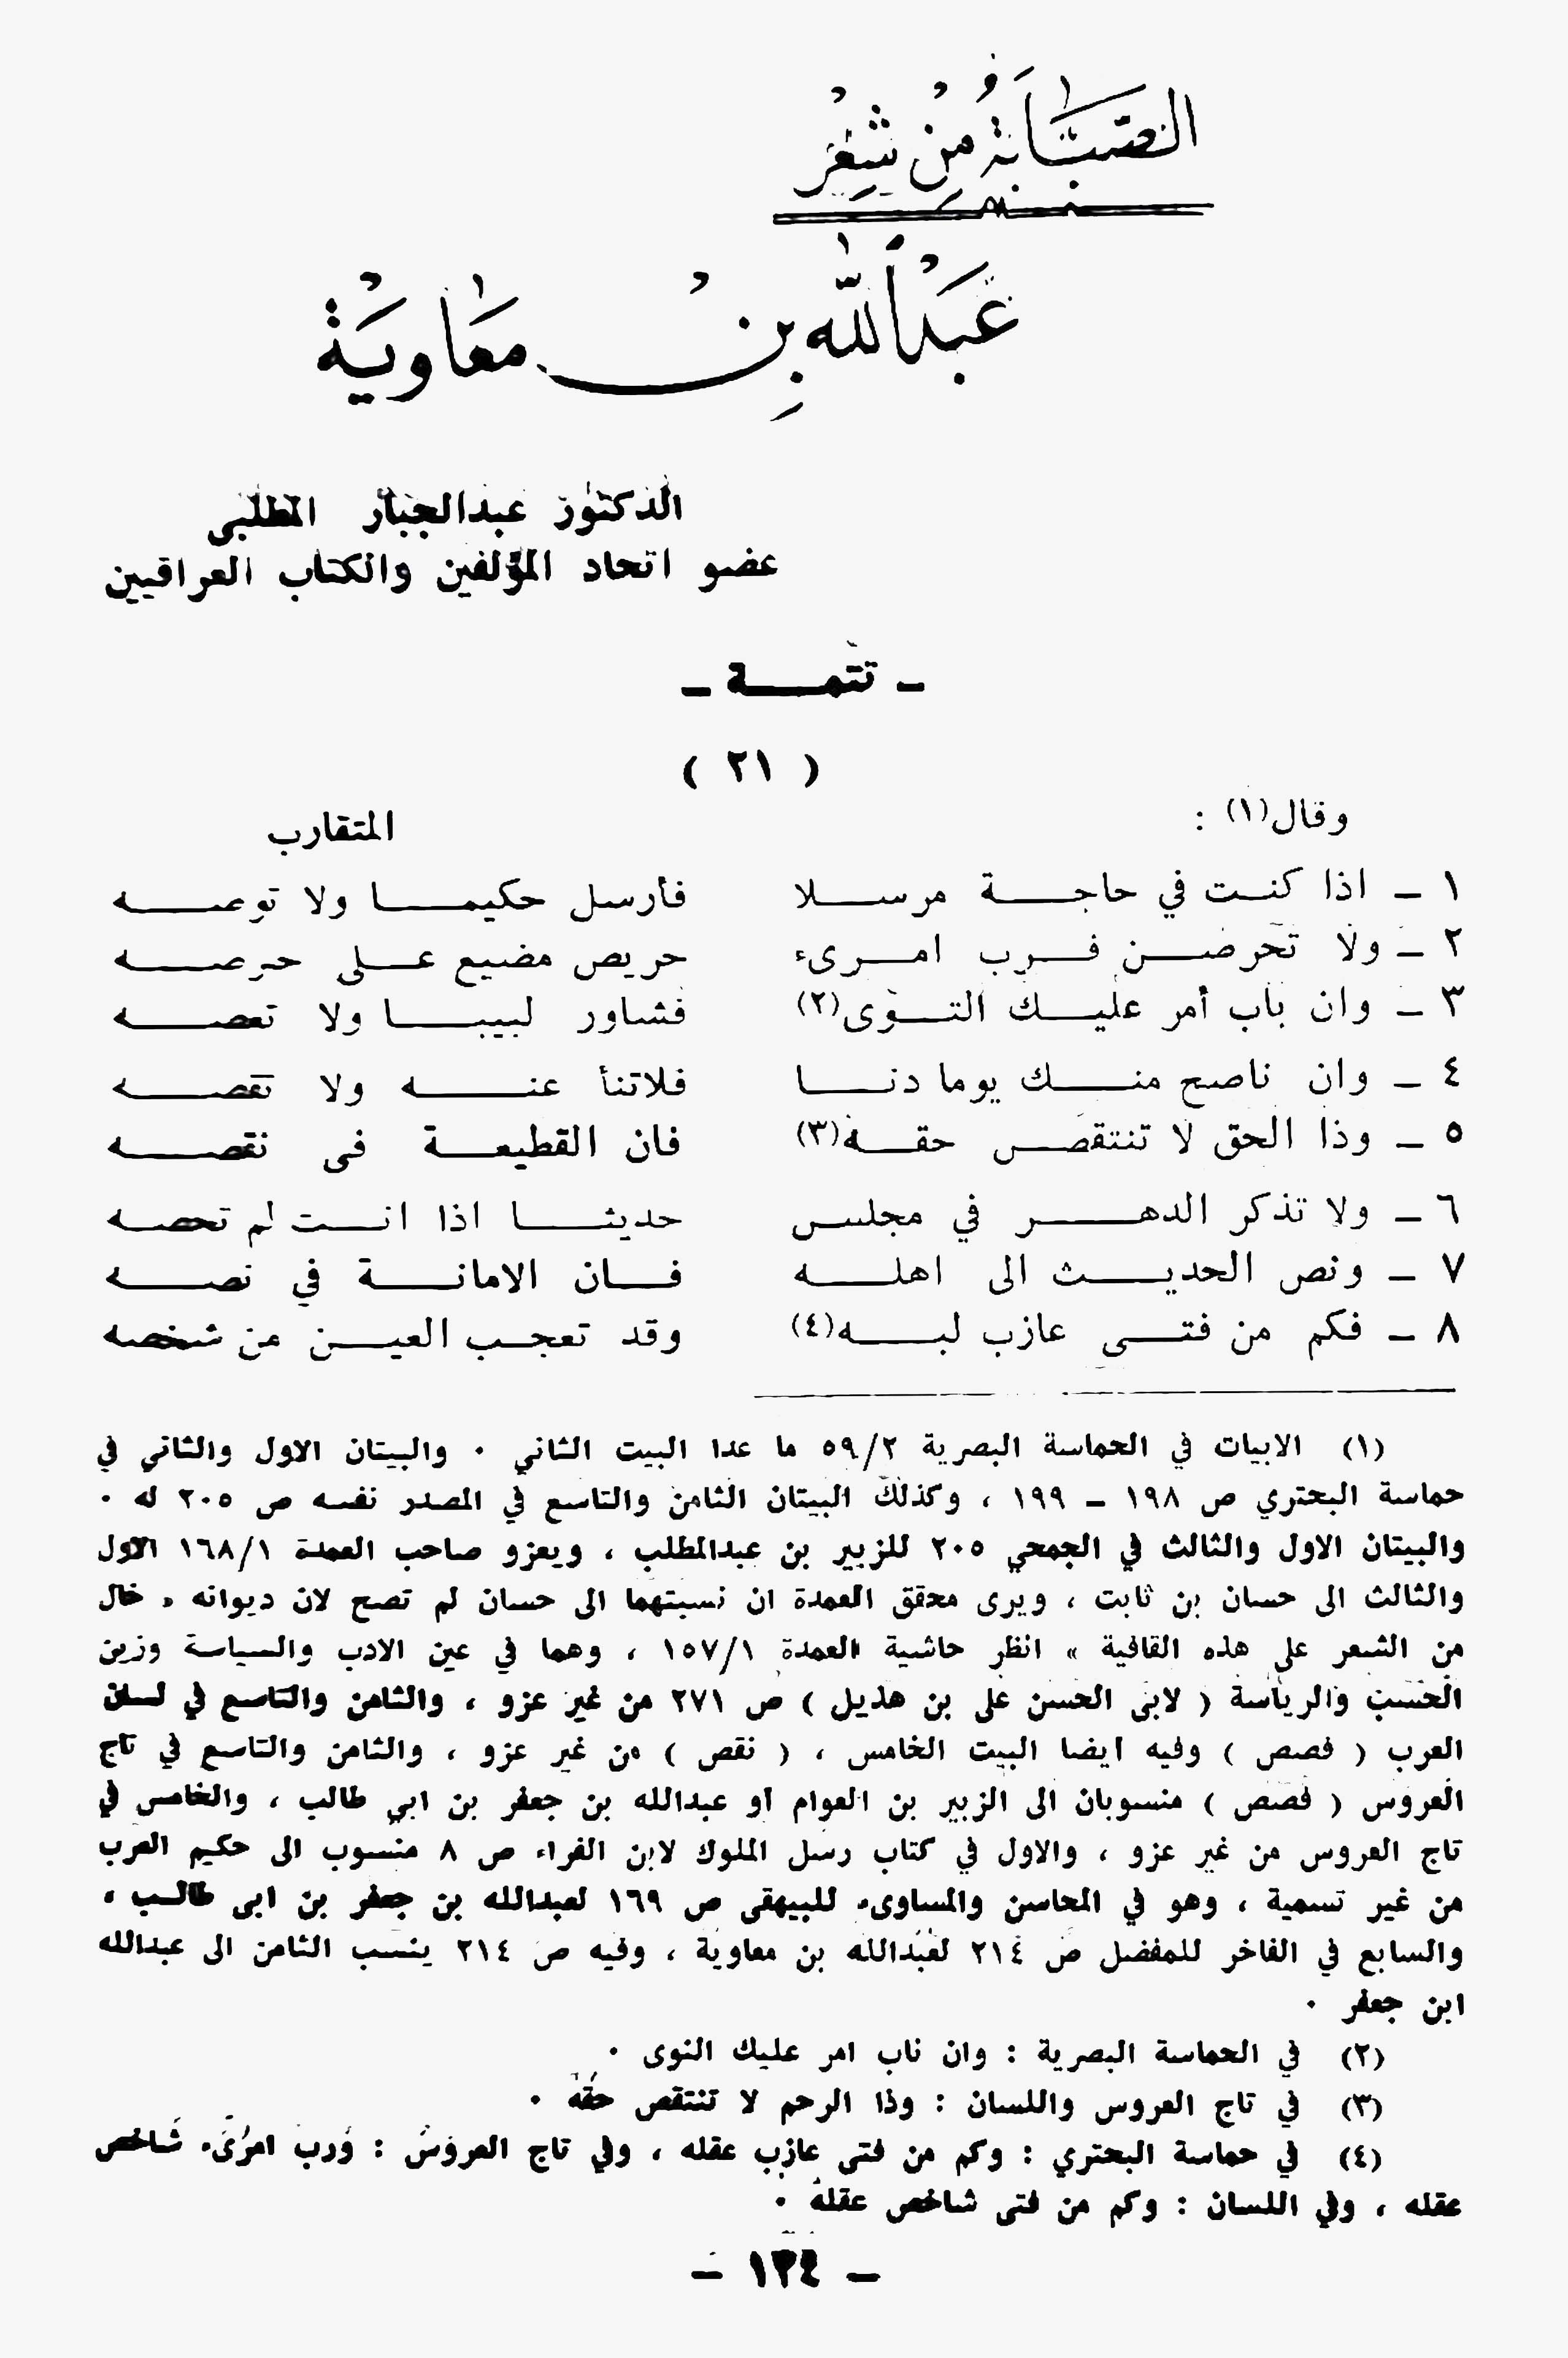 الصُّبَابَةُ مِنْ شِعْرِ
عَبْدِاللّٰه بِنْ مُعَاوِيَة
الدكتور عبدالجبار المطلبي
عضو اتحاد المؤلفين والكتاب العراقيين
- تتمـــة -
( ٢١ )
وقال(١) :
المتقارب
١ - اذا كنت في حاجة مرسلا فأرسل حكيما ولا توصه
٢ - ولا تحرصن فرب امرىء حريص مضيع على حرصه
٣ - وان باب أمر عليك التوى(٢) فشاور لبيبا ولا تعصه
٤ - وان ناصح منك يوما دنا فلاتنأ عنه ولا تقصه
٥ - وذا الحق لا تنتقص حقه(٣) فان القطيعة فى نقصه
٦ - ولا تذكر الدهر في مجلس حديثا اذا انت لم تحصه
٧ - ونص الحديث الى اهله فان الامانة في نصه
٨ - فكم من فتى عازب لبه(٤) وقد تعجب العين من شخصه
(١) الابيات في الحماسة البصرية ٥٩/٢ ما عدا البيت الثاني . والبيتان الاول والثاني في
حماسة البحتري ص ١٩٨ - ١٩٩ ، وكذلك البيتان الثامن والتاسع في المصدر نفسه ص ٢٠٥ له .
والبيتان الاول والثالث في الجمحي ٢٠٥ للزبير بن عبدالمطلب ، ويعزو صاحب العمدة ١٦٨/١ الاول
والثالث الى حسان بن ثابت ، ويرى محقق العمدة ان نسبتهما الى حسان لم تصح لان ديوانه « خال
من الشعر على هذه القافية » انظر حاشية العمدة ١٥٧/١ ، وهما في عين الادب والسياسة وزين
الحسب والرياسة ( لابى الحسن على بن هذيل ) ص ٢٧١ من غير عزو ، والثامن والتاسع في لسان
العرب ( فصص ) وفيه ايضا البيت الخامس ، ( نقص ) من غير عزو ، والثامن والتاسع في تاج
العروس ( فصص ) منسوبان الى الزبير بن العوام او عبدالله بن جعفر بن ابي طالب ، والخامس في
تاج العروس من غير عزو ، والاول في كتاب رسل الملوك لابن الفراء ص ٨ منسوب الى حكيم العرب
من غير تسمية ، وهو في المحاسن والمساوىء للبيهقى ص ١٦٩ لعبدالله بن جعفر بن ابى طالب ،
والسابع في الفاخر للمفضل ص ٢١٤ لعبدالله بن معاوية ، وفيه ص ٢١٤ ينسب الثامن الى عبدالله
ابن جعفر .
(٢) في الحماسة البصرية : وان ناب امر عليك النوى .
(٣) في تاج العروس واللسان : وذا الرحم لا تنتقص حقه .
(٤) في حماسة البحتري : وكم من فتى عازب عقله ، وفي تاج العروس : ورب امرىء شاخص
عقله ، وفي اللسان : وكم من فتى شاخص عقله .
- ١٢٤ -